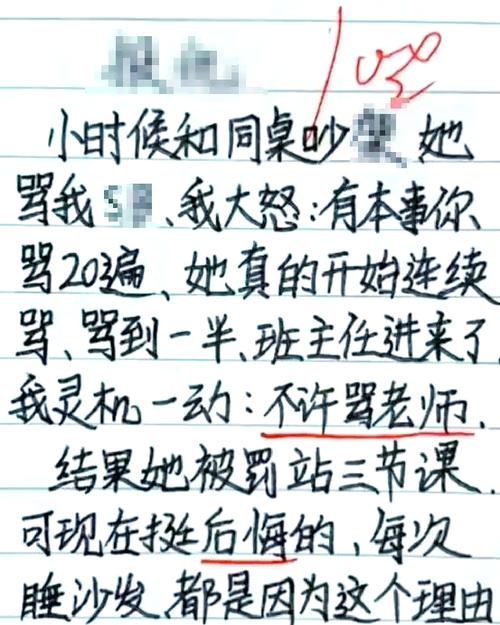 小时候和同桌吵 她
骂我 、我大怒:有本事你
骂20遍、她真的开始连续
骂、骂到一半、班主任进来了
我灵机一动:不许骂老师.
结果她被罚站三节课.
可现在挺后悔的,每次
睡沙发、都是因为这个理由